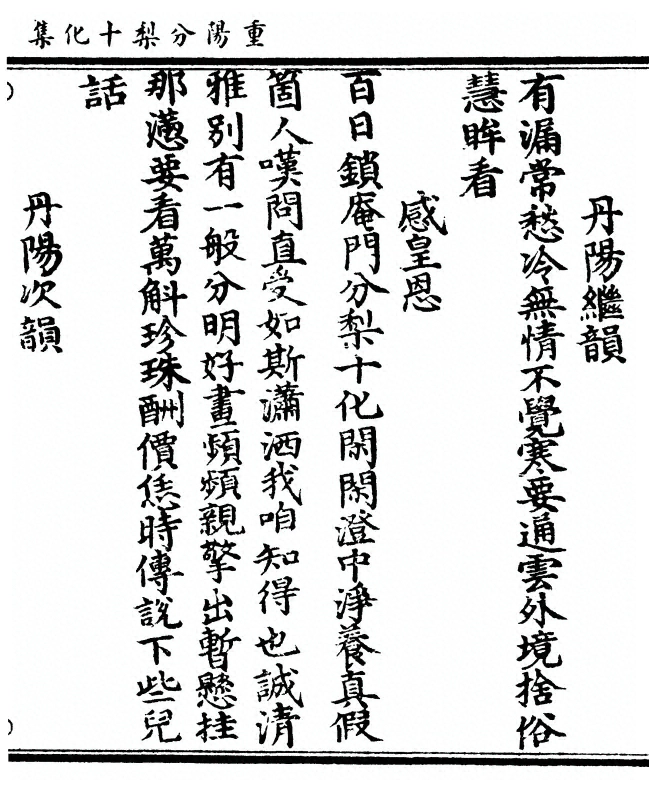 重陽分梨十化集
丹陽繼韻
有漏常愁冷無情不覺寒要通雲外境捨俗
慧眸看
感皇恩
百日鎖庵門分梨十化閑閑澄中淨養真假
箇人嘆問直受如斯瀟洒我咱知得也誠清
雅別有一般分明好畫頻頻親擎出暫懸挂
那懑要看萬斛珍珠酬價恁時傳說下些兒
話
丹陽次韻